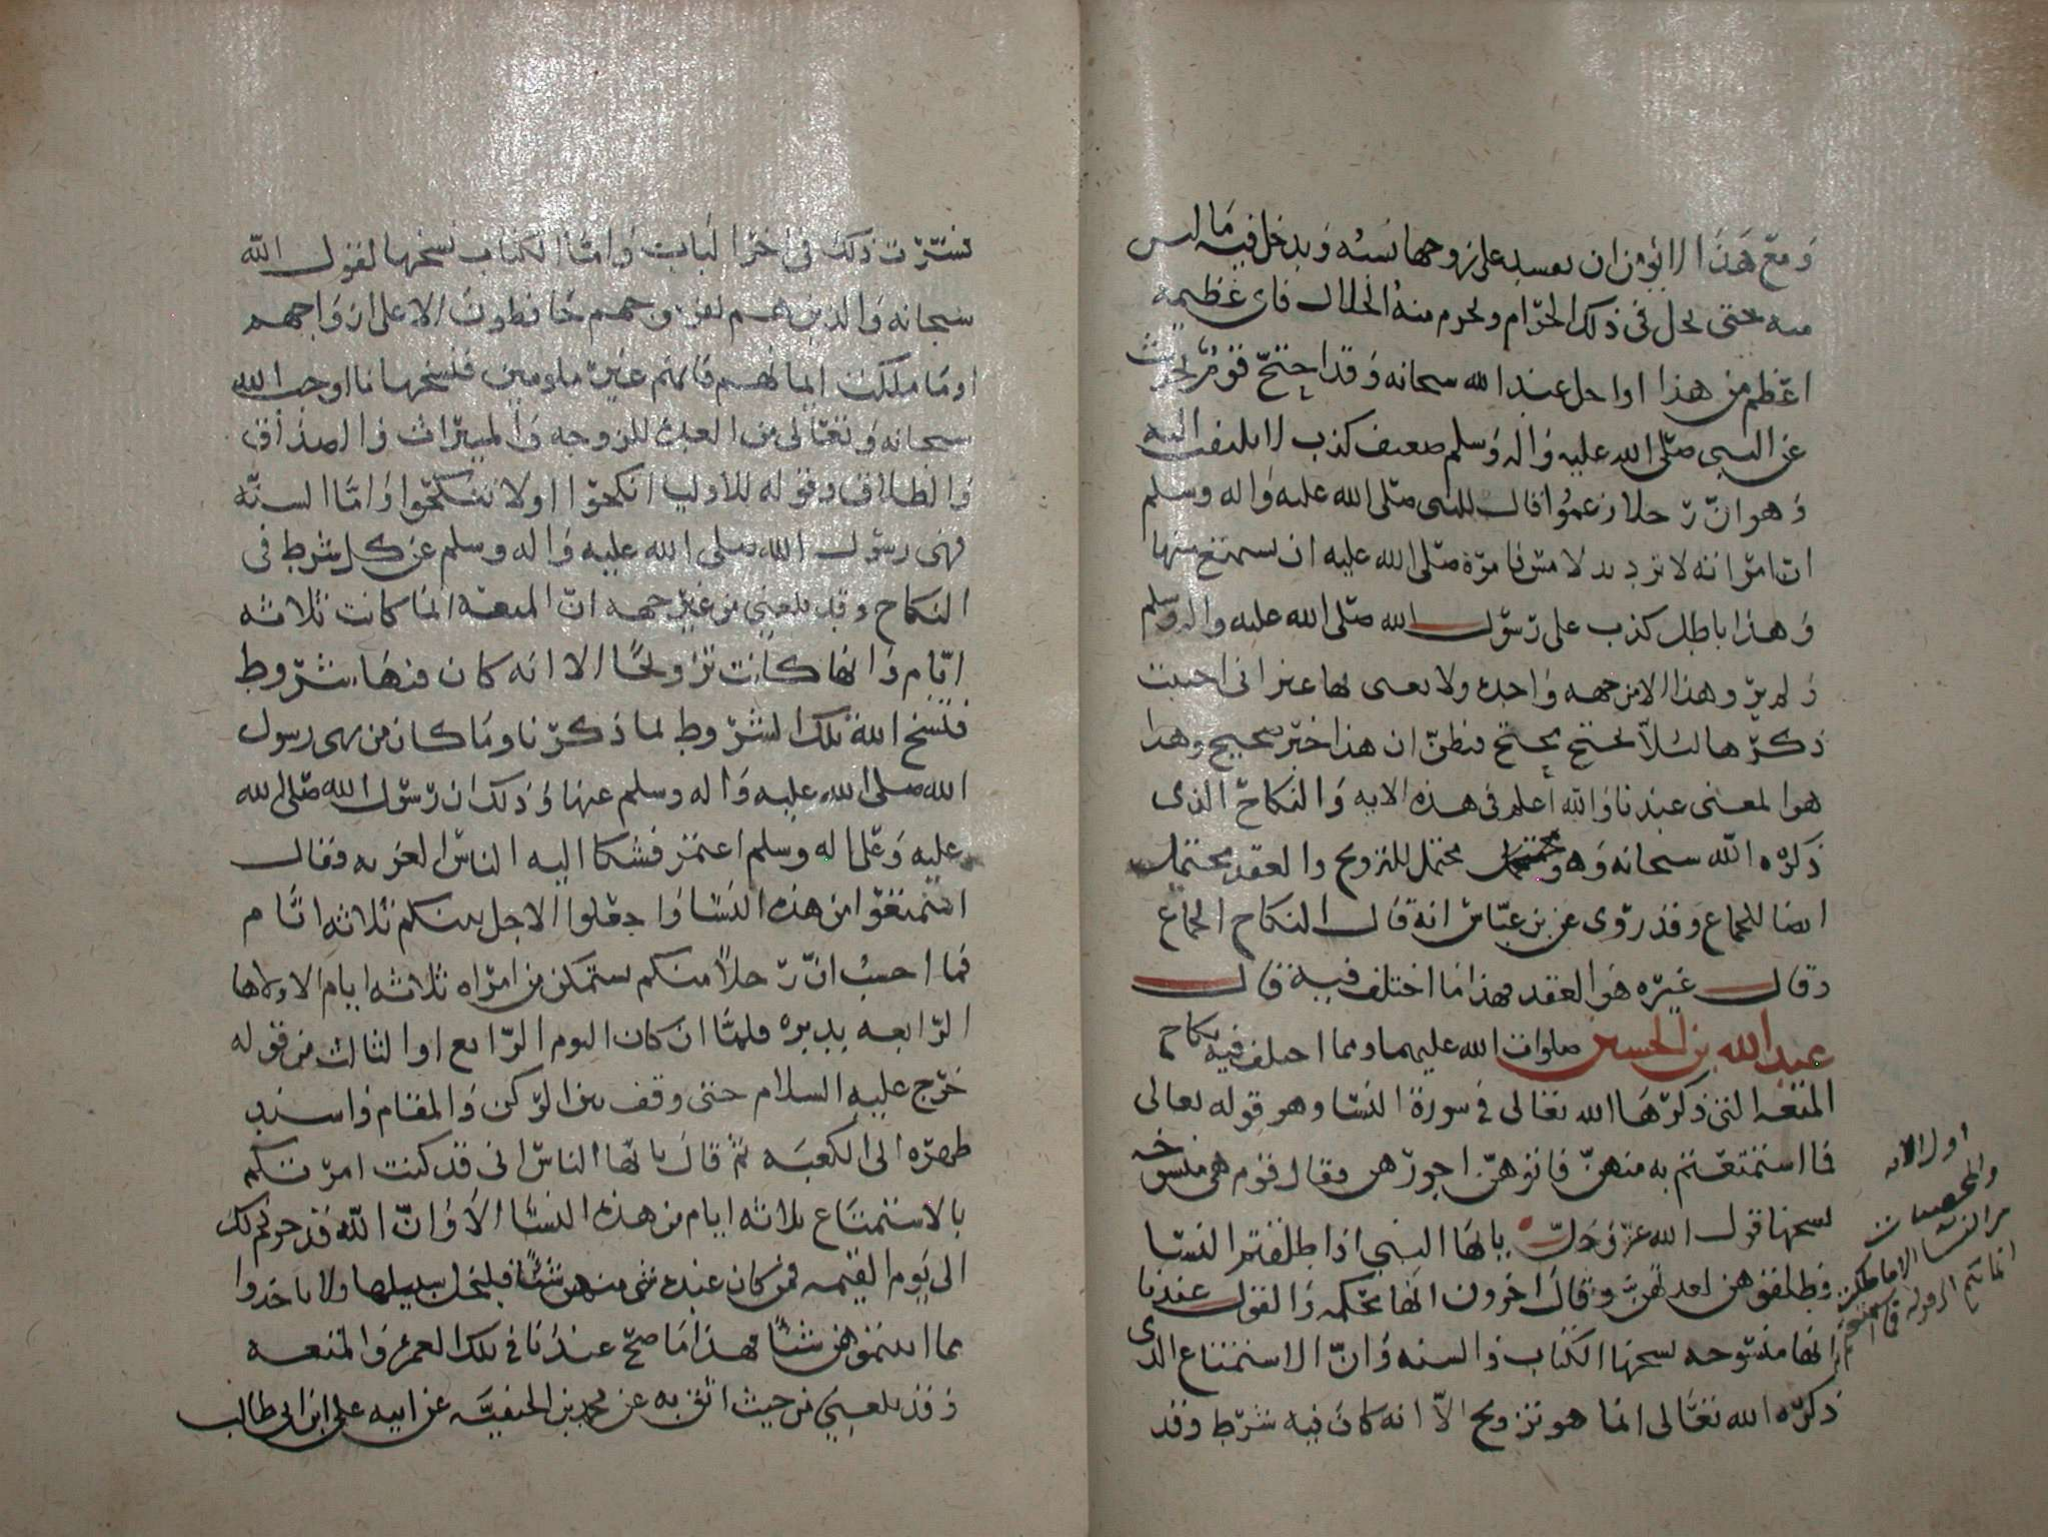 ومع هذا الا يؤمن ان تفسد على زوجها نسبه ويدخل فيه ما ليس
منه حتى يحل في ذلك الحرام ويحرم منه الحلال فاي عظيمه
اعظم من هذا او اجل عند الله سبحانه وقد احتج قوم بحديث
عن النبي صلى الله عليه واله وسلم ضعيف كذب لا يلتفت اليه
وهو ان رجلا زعموا قال للنبي صلى الله عليه واله وسلم
ان امراته لا ترد يد لامس فامره صلى الله عليه ان يستمتع منها
وهذا باطل كذب على رسول الله صلى الله عليه واله وسلم
ولم يرو هذا الا من جهه واحده ولا يعبى بها غير اني احببت
ذكرها لئلا يحتج محتج فيظن ان هذا خبر صحيح وهذا
هو المعنى عندنا والله اعلم في هذه الايه والنكاح الذي
ذكره الله سبحانه وهو محتمل للتزويج والعقد محتمل
ايضا للجماع وقد روي عن بن عباس انه قال النكاح الجماع
وقال غيره هو العقد فهذا ما اختلف فيه قال
عبد الله بن الحسين صلوات الله عليهما ومما اختلف فيه نكاح
المتعه التي ذكرها الله تعالى في سورة النسا وهو قوله تعالى
فما استمتعتم به منهن فاتوهن اجورهن فقال قوم هي منسوخه
نسخها قول الله عز وجل يايها النبي اذا طلقتم النسا
فطلقوهن لعدتهن وقال اخرون انها محكمه والقول عندنا
انها منسوخه نسخها الكتاب والسنه وان الاستمتاع الذي
ذكره الله تعالى انما هو تزويج الا انه كان فيه شرط وقد
اول الايه
والمحصنات
من النسا الا ما ملكت
ايمانكم الى قوله فما استمتعتم
فسرت ذلك في اخر الباب واما الكتاب نسخها لقول الله
سبحانه والذين هم لفروجهم حافظون الا على ازواجهم
او ما ملكت ايمانهم فانهم غير ملومين فنسخها ما اوجب الله
سبحانه وتعالى من العده للزوجه والميراث والصداق
والطلاق وقوله للاوليا انكحوا او لا تنكحوا واما السنه
فنهى رسول الله صلى الله عليه واله وسلم عن كل شرط في
النكاح وقد بلغني من غير جهه ان المتعه انما كانت ثلاثه
ايام وانها كانت تزويجا الا انه كان فيها شروط
فنسخ الله تلك الشروط لما ذكرنا وما كان من نهي رسول
الله صلى الله عليه واله وسلم عنها وذلك ان رسول الله صلى الله
عليه وعلى اله وسلم اعتمر فشكا اليه الناس العزبه فقال
استمتعوا من هذه النسا واجعلوا الاجل بينكم ثلاثه ايام
فما احسب ان رجلا منكم يستمكن من امراه ثلاثه ايام الا ولاها
الرابعه بدبره فلما ان كان اليوم الرابع او الثالث من قوله
خرج عليه السلام حتى وقف بين الركن والمقام واسند
ظهره الى الكعبه ثم قال يايها الناس اني قد كنت امرتكم
بالاستمتاع ثلاثه ايام من هذه النسا الا وان الله قد حرم ذلك
الى يوم القيمه فمن كان عنده شي منهن شيا فليخل سبيلها ولا ياخذوا
مما اتيتموهن شيا فهذا ما صح عندنا في تلك العمره والمتعه
وقد بلغني من حيث اثق به عن محمد بن الحنفيه عن ابيه علي ابن ابي طالب